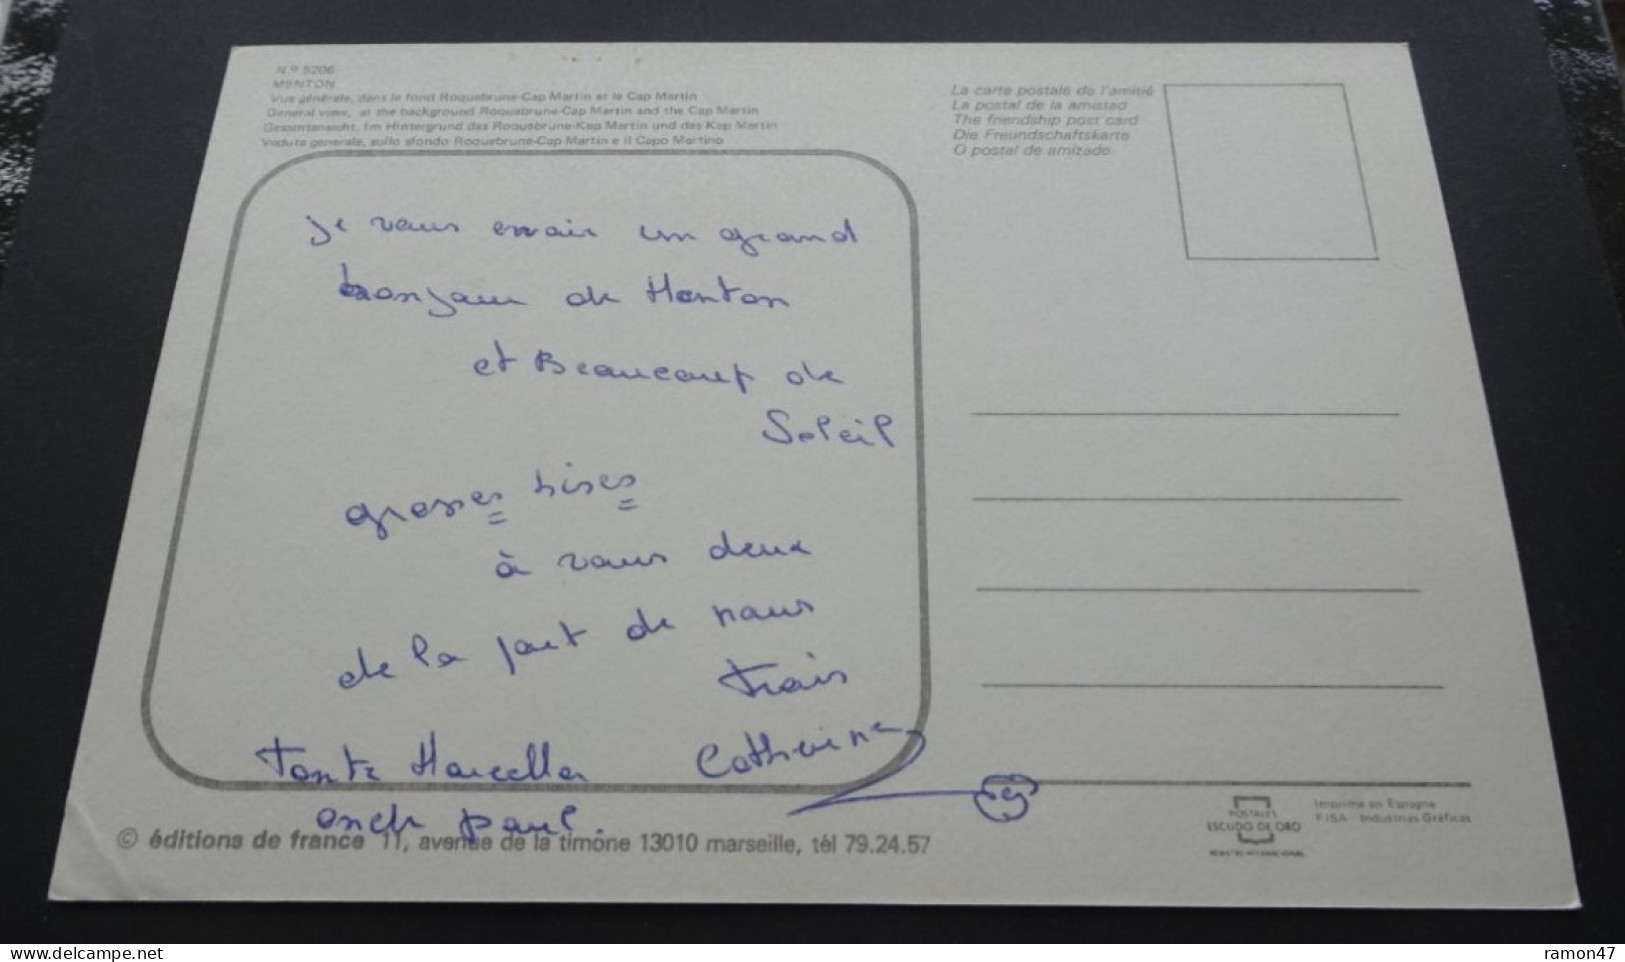 N.º 5206
MENTON
Vue générale, dans le fond Roquebrune-Cap Martin et le Cap Martin
General view, at the background Roquebrune-Cap Martin and the Cap Martin
Gesamtansicht, Im Hintergrund das Roquebrune-Kap Martin und das Kap Martin
Veduta generale, sullo sfondo Roquebrune-Cap Martin e il Capo Martino
La carte postale de l'amitié
La postal de la amistad
The friendship post card
Die Freundschaftskarte
O postal de amizade
je vous envoie un grand
bonjour de Menton
et Beaucoup de
Soleil
grosses bises
à vous deux
de la part de nous
trois
Tonte Marcelle
oncle paul.
Catherine
© éditions de france 11, avenue de la timone 13010 marseille, tél 79.24.57
POSTALES
ESCUDO DE ORO
Imprimé en Espagne
FISA - Industrias Gráficas
delcampe.net
ramon47